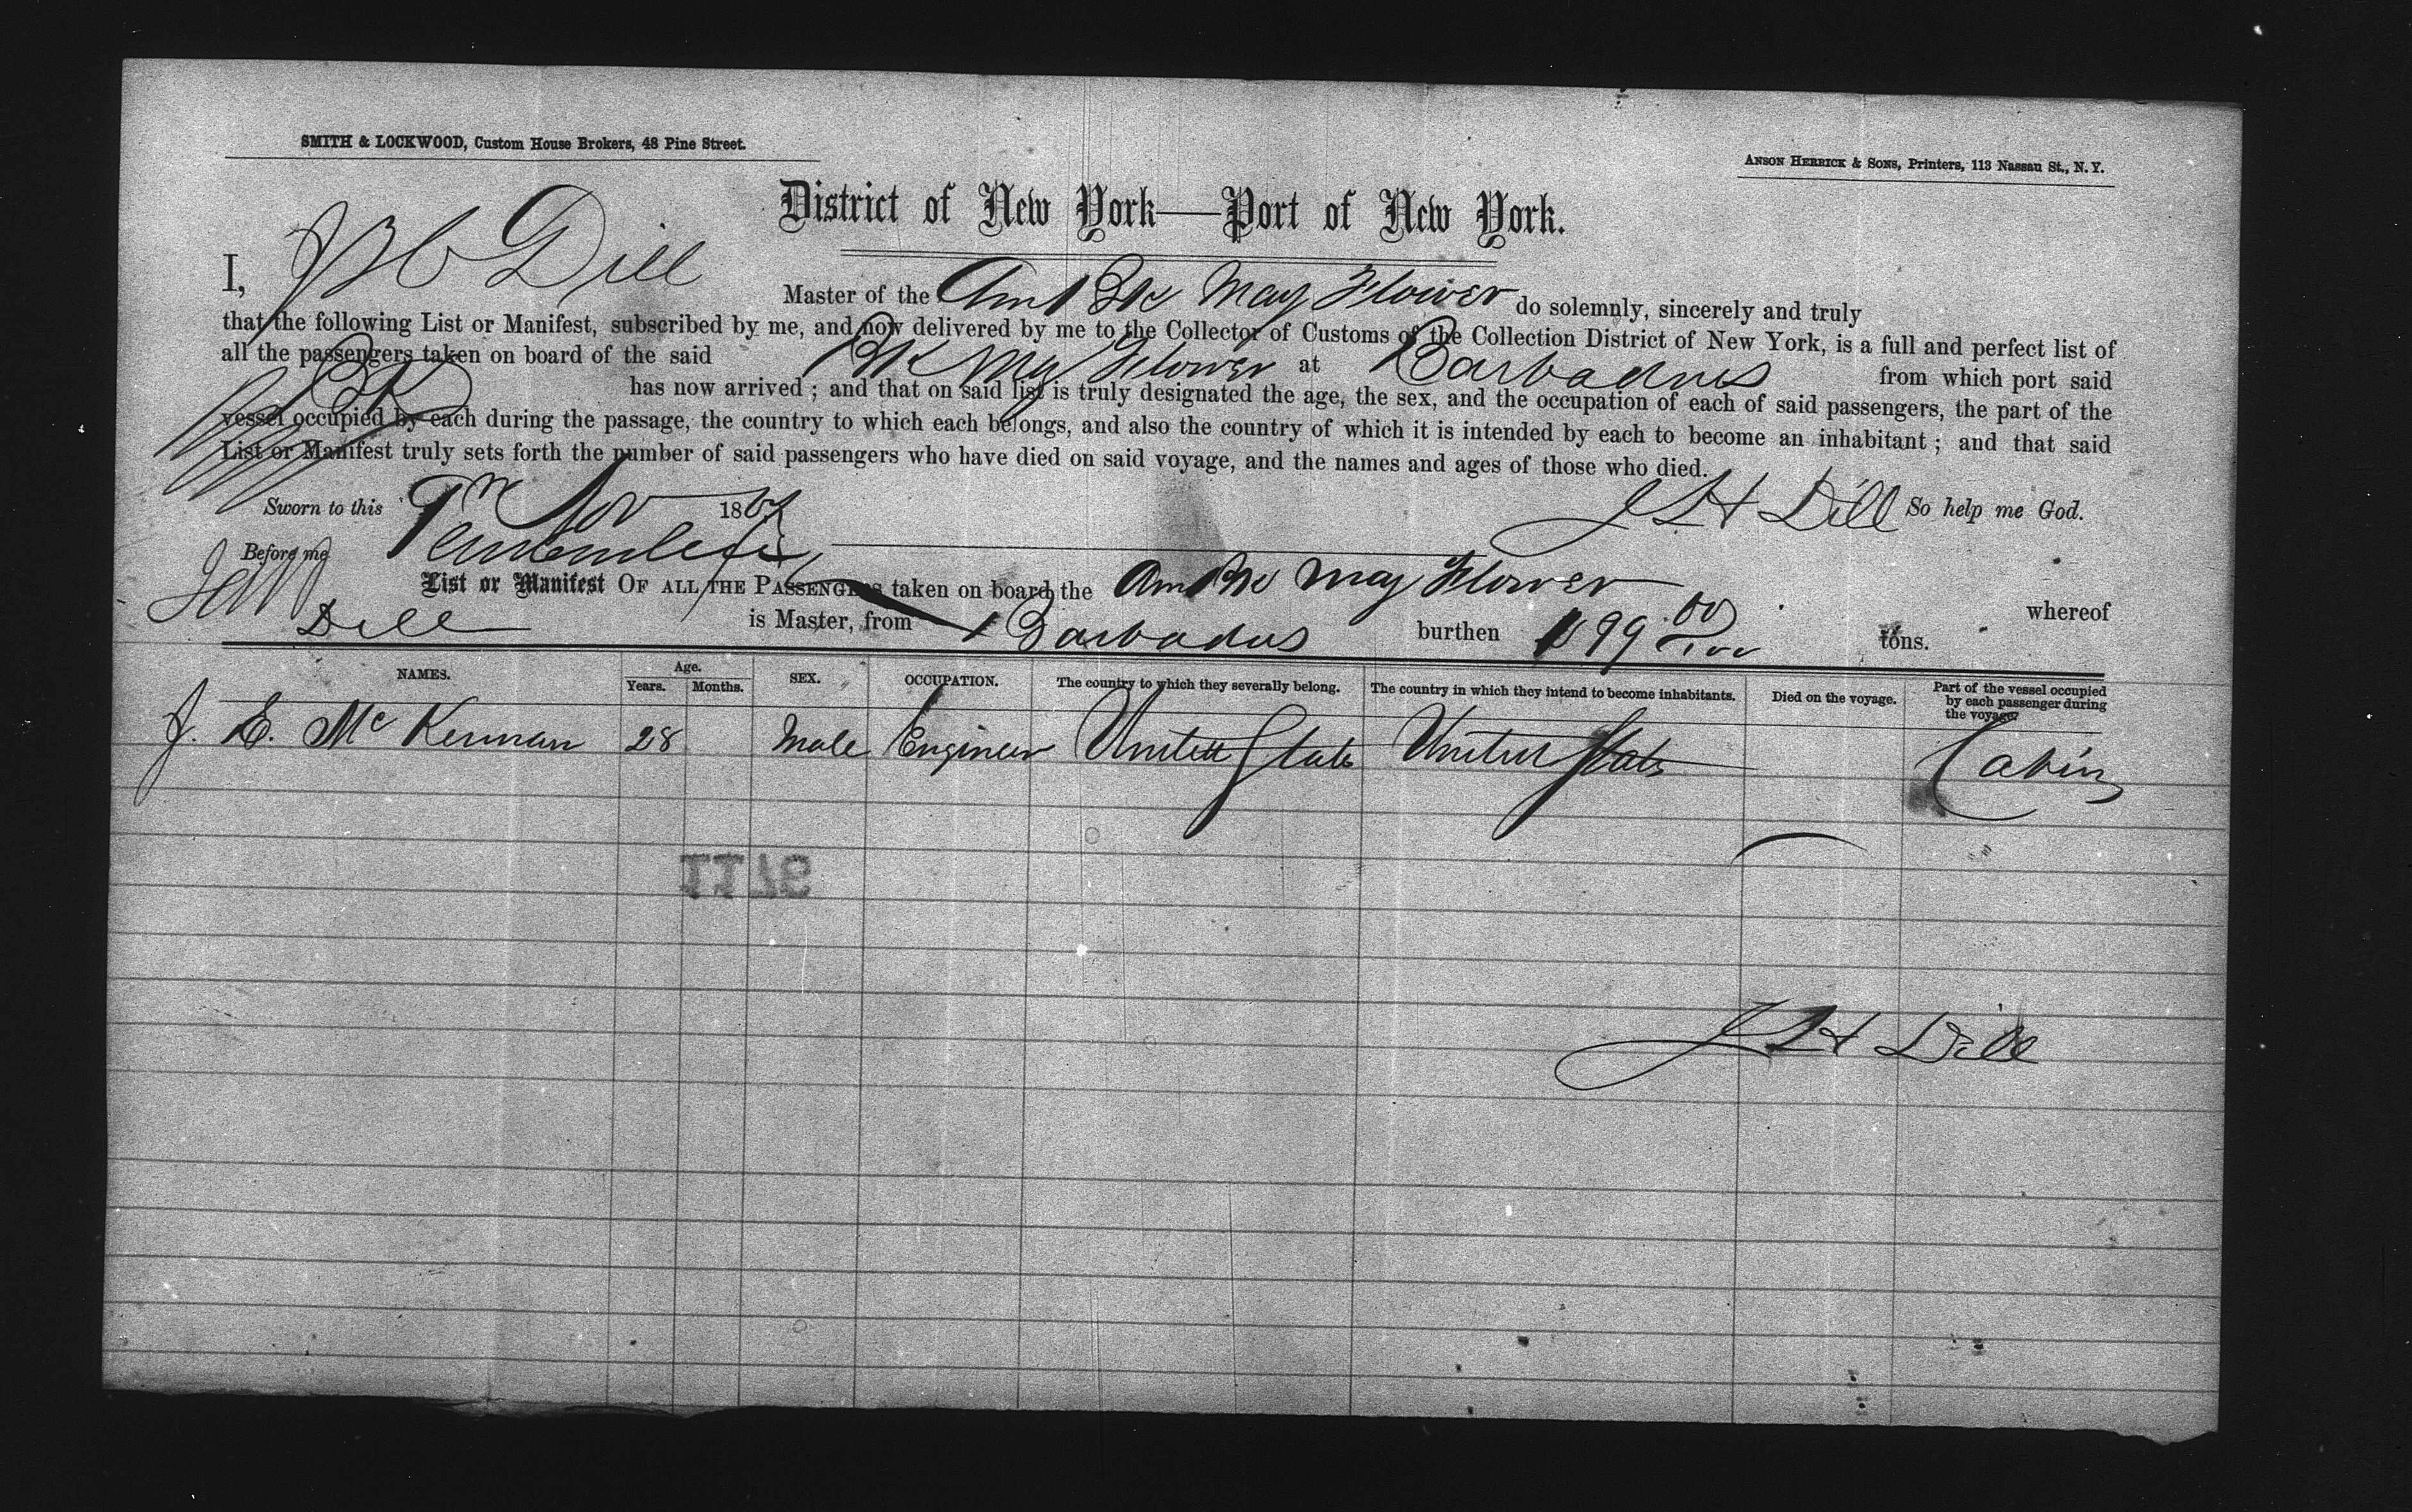 SMITH & LOCKWOOD, Custom House Brokers, 48 Pine Street.
ANSON HERRICK & SONS, Printers, 113 Nassau St., N. Y.
District of New York—Port of New York.
I, Dill Master of the Am Bk May Flower do solemnly, sincerely and truly
that the following List or Manifest, subscribed by me, and now delivered by me to the Collector of Customs of the Collection District of New York, is a full and perfect list of
all the passengers taken on board of the said Bk May Flower at Barbadus from which port said
Bk has now arrived ; and that on said list is truly designated the age, the sex, and the occupation of each of said passengers, the part of the
vessel occupied by each during the passage, the country to which each belongs, and also the country of which it is intended by each to become an inhabitant ; and that said
List or Manifest truly sets forth the number of said passengers who have died on said voyage, and the names and ages of those who died.
Sworn to this Nov 186 J H Dill So help me God.
Before me
List or Manifest OF ALL THE PASSENGERS taken on board the Am Bk May Flower whereof
Dill is Master, from Barbadus burthen tons.
NAMES. Age. Years. Months. SEX. OCCUPATION. The country to which they severally belong. The country in which they intend to become inhabitants. Died on the voyage. Part of the vessel occupied by each passenger during the voyage.
J. E. Mc Kernan 28 Male Engineer United States United States Cabin
1176
J H Dill